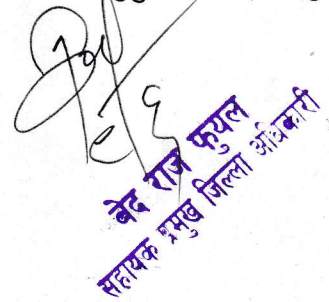 वेद राज फुयल
सहायक प्रमुख जिल्ला अधिकारी